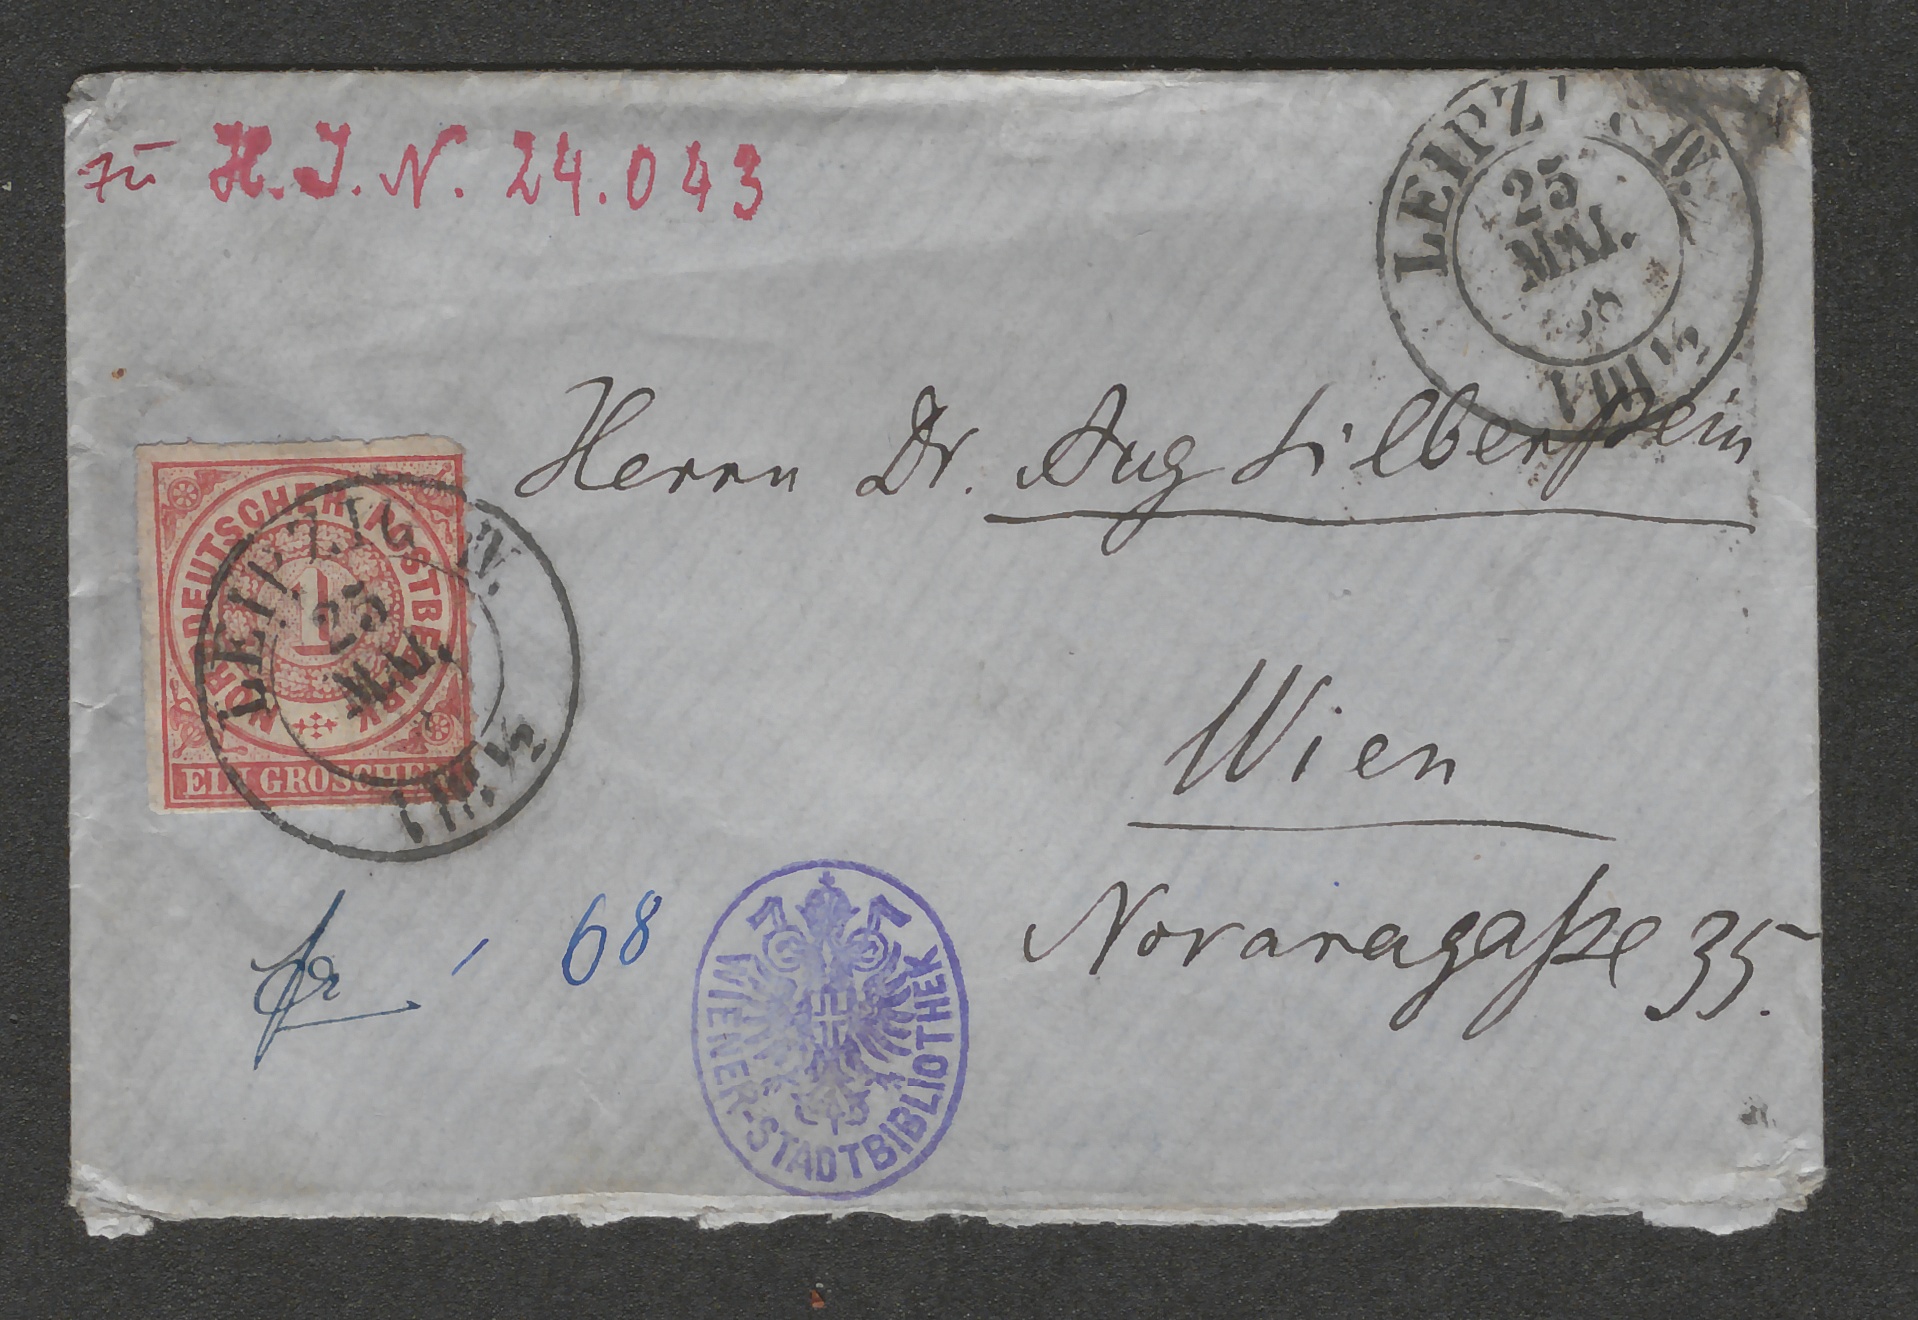 zu H. I. N. 24.043
LEIPZIG IV.
25
MAI.
68
VIII ½
Herrn Dr. Aug Silberstein
NORDDEUTSCHER POSTBEZIRK
1
EIN GROSCHEN
LEIPZIG IV.
25
MAI.
VIII ½
Wien
Novaragaße 35.
68
WIENER-STADTBIBLIOTHEK